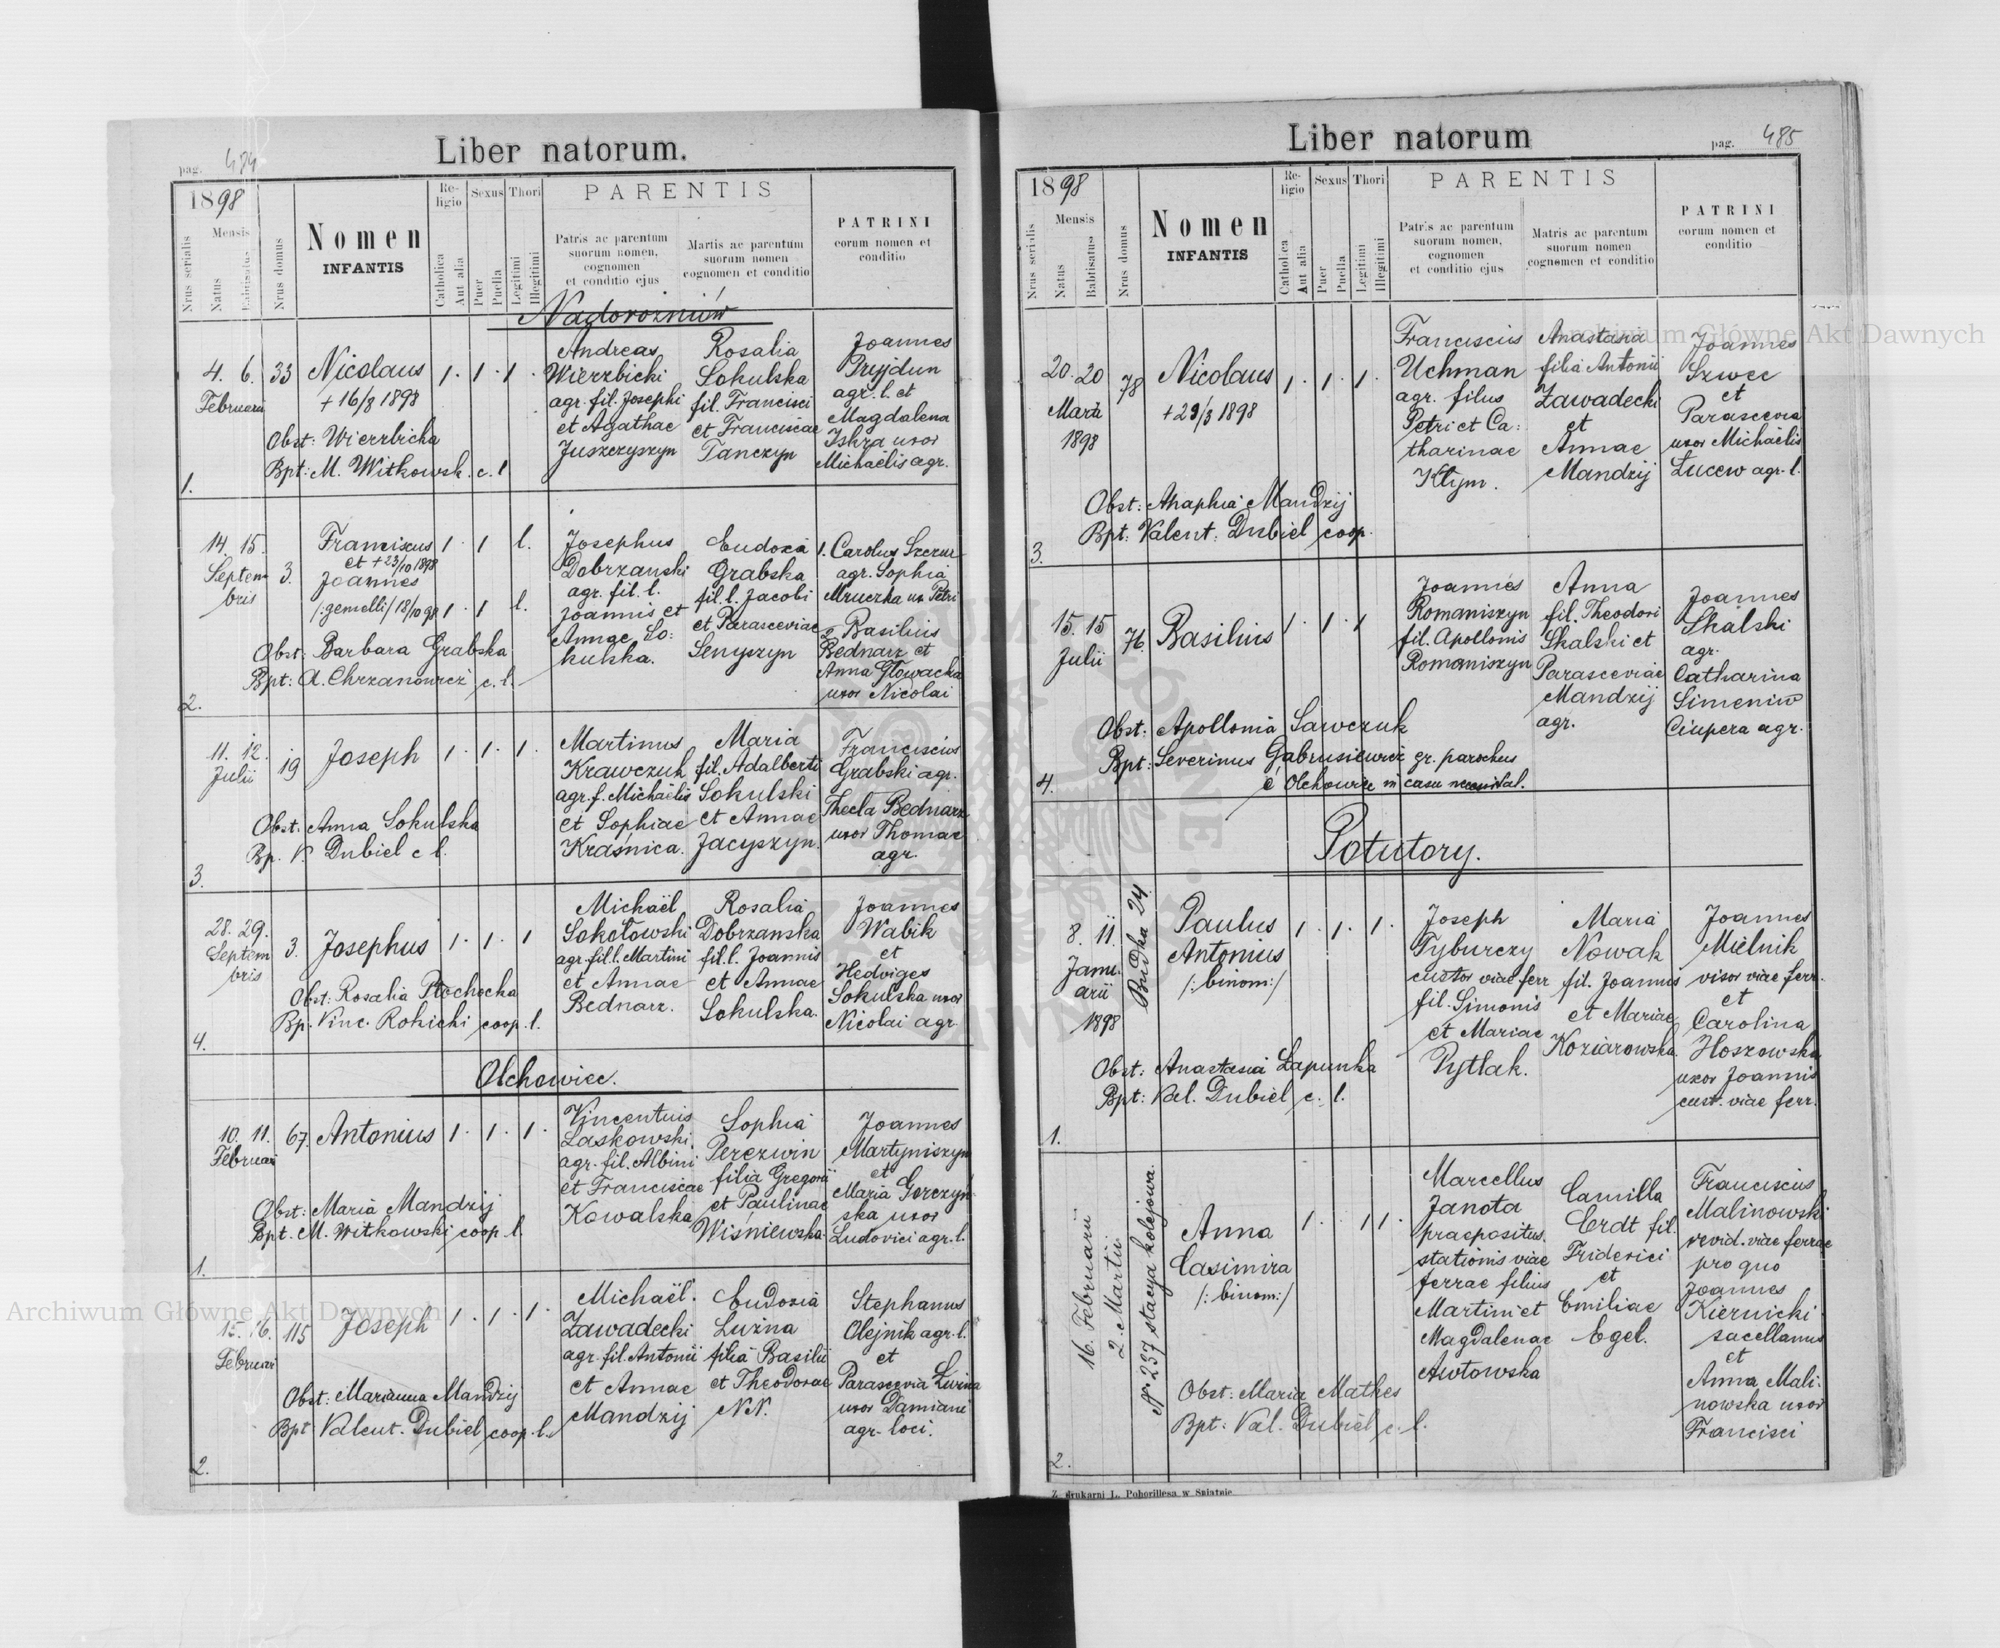 pag. 484
Liber natorum.
1898
Mensis
Nrus serialis
Natus
Babtisatus
Nrus domus
Nomen
INFANTIS
Re-
ligio
Catholica
Aut alia
Sexus
Puer
Puella
Thori
Legitimi
Illegitimi
PARENTIS
Patris ac parentum
suorum nomen,
cognomen
et conditio ejus
Martis ac parentum
suorum nomen
cognomen et conditio
PATRINI
eorum nomen et
conditio
Nadorożniów
1.
4. 6.
Februarii
33
Nicolaus
+ 16/8 1898
1. 1. 1.
Obst: Wierzbicka
Bpt: M. Witkowsk. c. l
Andreas
Wierzbicki
agr. fil. Josephi
et Agathae
Juszczyszyn
Rosalia
Sokulska
fil. Francisci
et Franciscae
Tanczyn
Joannes
Pryjdun
agr. l. et
Magdalena
Iskra uxor
Michaëlis agr.
2.
14. 15.
Septem
bris
3.
Franciscus
et + 23/10 1898
Joannes
/:gemelli/ 18/10 98
1 1 l.
1. 1 l.
Obst: Barbara Grabska
Bpt: A. Chrzanowicz c. l.
Josephus
Dobrzanski
agr. fil. l.
Joannis et
Annae So:
kulska.
Eudoxia
Grabska
fil. l. Jacobi
et Parasceviae
Senyszyn
1. Carolus
agr. Sophia
Mruczka ux Petri
2. Basilius
Bednarz et
Anna Głowacka
uxor Nicolai
3.
11. 12.
Julii
19
Joseph
1. 1. 1.
Obst: Anna Sokulska
Bp. V. Dubiel c l.
Martinus
Krawczuk
agr. f. Michaëlis
et Sophiae
Kraśnica.
Maria
fil. Adalberti
Sokulski
et Annae
Jacyszyn.
Franciscus
Grabski agr.
Thecla Bednarz
uxor Thomae
agr.
4.
28. 29.
Septem
bris
3.
Josephus
1. 1. 1
Obst: Rosalia Płochocka
Bp. Vinc. Rokicki coop. l.
Michaël
Sokołowski
agr. fil. l. Martini
et Annae
Bednarz.
Rosalia
Dobrzanska
fil. l. Joannis
et Annae
Sokulska.
Joannes
Wabik
et
Hedviges
Sokulska uxor
Nicolai agr.
Olchowiec.
1.
10. 11.
Februarii
67.
Antonius
1. 1. 1.
Obst: Maria Mandzij
Bpt. M. Witkowski coop. l.
Vincentius
Laskowski
agr. fil. Albini
et Franciscae
Kowalska
Sophia
Perezwin
filia Gregorii
et Paulinae
Wiśniewska
Joannes
Martyniszyn
et
Maria Gorczyń-
ska uxor
Ludovici agr. l.
2.
15. 16.
Februarii
115
Joseph
1. 1. 1.
Obst: Marianna Mandzij
Bpt. Valent. Dubiel coop. l.
Michaël.
Zawadecki
agr. fil. Antonii
et Annae
Mandzij
Eudoxia
Luzna
filia Basilii
et Theodorae
NN.
Stephanus
Olejnik agr. l.
et
Parascevia Luzna
uxor Damiani
agr. loci.
Liber natorum
pag. 485
1898
Mensis
Nrus serialis
Natus
Babtisatus
Nrus domus
Nomen
INFANTIS
Re-
ligio
Catholica
Aut alia
Sexus
Puer
Puella
Thori
Legitimi
Illegitimi
PARENTIS
Patris ac parentum
suorum nomen,
cognomen
et conditio ejus
Matris ac parentum
suorum nomen
cognomen et conditio
PATRINI
eorum nomen et
conditio
3.
20. 20
Martii
1898
78
Nicolaus
+ 29/3 1898
1. 1. 1.
Obst: Ahaphia Mandzij
Bpt: Valent: Dubiel coop.
Franciscus
Uchman
agr. filus
Petri et Ca:
tharinae
Kłym.
Anastasia
filia Antonii
Zawadecki
et
Annae
Mandzij
Joannes
Szwec
et
Parascevia
uxor Michaëlis
Łucew agr. l.
4.
15. 15
Julii
76.
Basilius
1. 1. 1
Obst: Apollonia Sawczuk
Bpt: Severinus Gabrusiewicz gr. parochus
é Olchowiec in casu necessitat.
Joannes
Romaniszyn
fil. Apollonis
Romaniszyn
Anna
fil. Theodori
Skalski et
Parasceviae
Mandzij
agr.
Joannes
Skalski
agr.
Catharina
Simeniw
Ciupera agr.
Potutory.
1.
8. 11.
Janu:
arii
1898
Budka 24.
Paulus
Antonius
/: binom:/
1. 1. 1.
Obst: Anastasia Łapunka
Bpt: Val. Dubiel c. l.
Joseph
Tyburczy
custor viae ferr
fil. Simonis
et Mariae
Pytlak.
Maria
Nowak
fil. Joannis
et Mariae
Koziarowska.
Joannes
Mielnik
visor viae ferr.
et
Carolina
Hoszowska
uxor Joannis
cust. viae ferr.
2.
16. Februarii
2. Martii
№ 237 stacya kolejowa.
Anna
Casimira
/: binom:/
1. 1 1.
Obst: Maria Mathes
Bpt: Val. Dubiel c. l.
Marcellus
Janota
praepositus
stationis viae
ferrae filius
Martini et
Magdalenae
Awtowska
Camilla
Erdt fil.
Friderici
et
Emiliae
Egel.
Franciscus
Malinowski
revid. viae ferrae
pro quo
Joannes
Kiernicki
sacellanus
et
Anna Mali-
nowska uxor
Francisci
Z drukarni L. Pohorillesa w Śniatnie
Archiwum Główne Akt Dawnych
Archiwum Główne Akt Dawnych